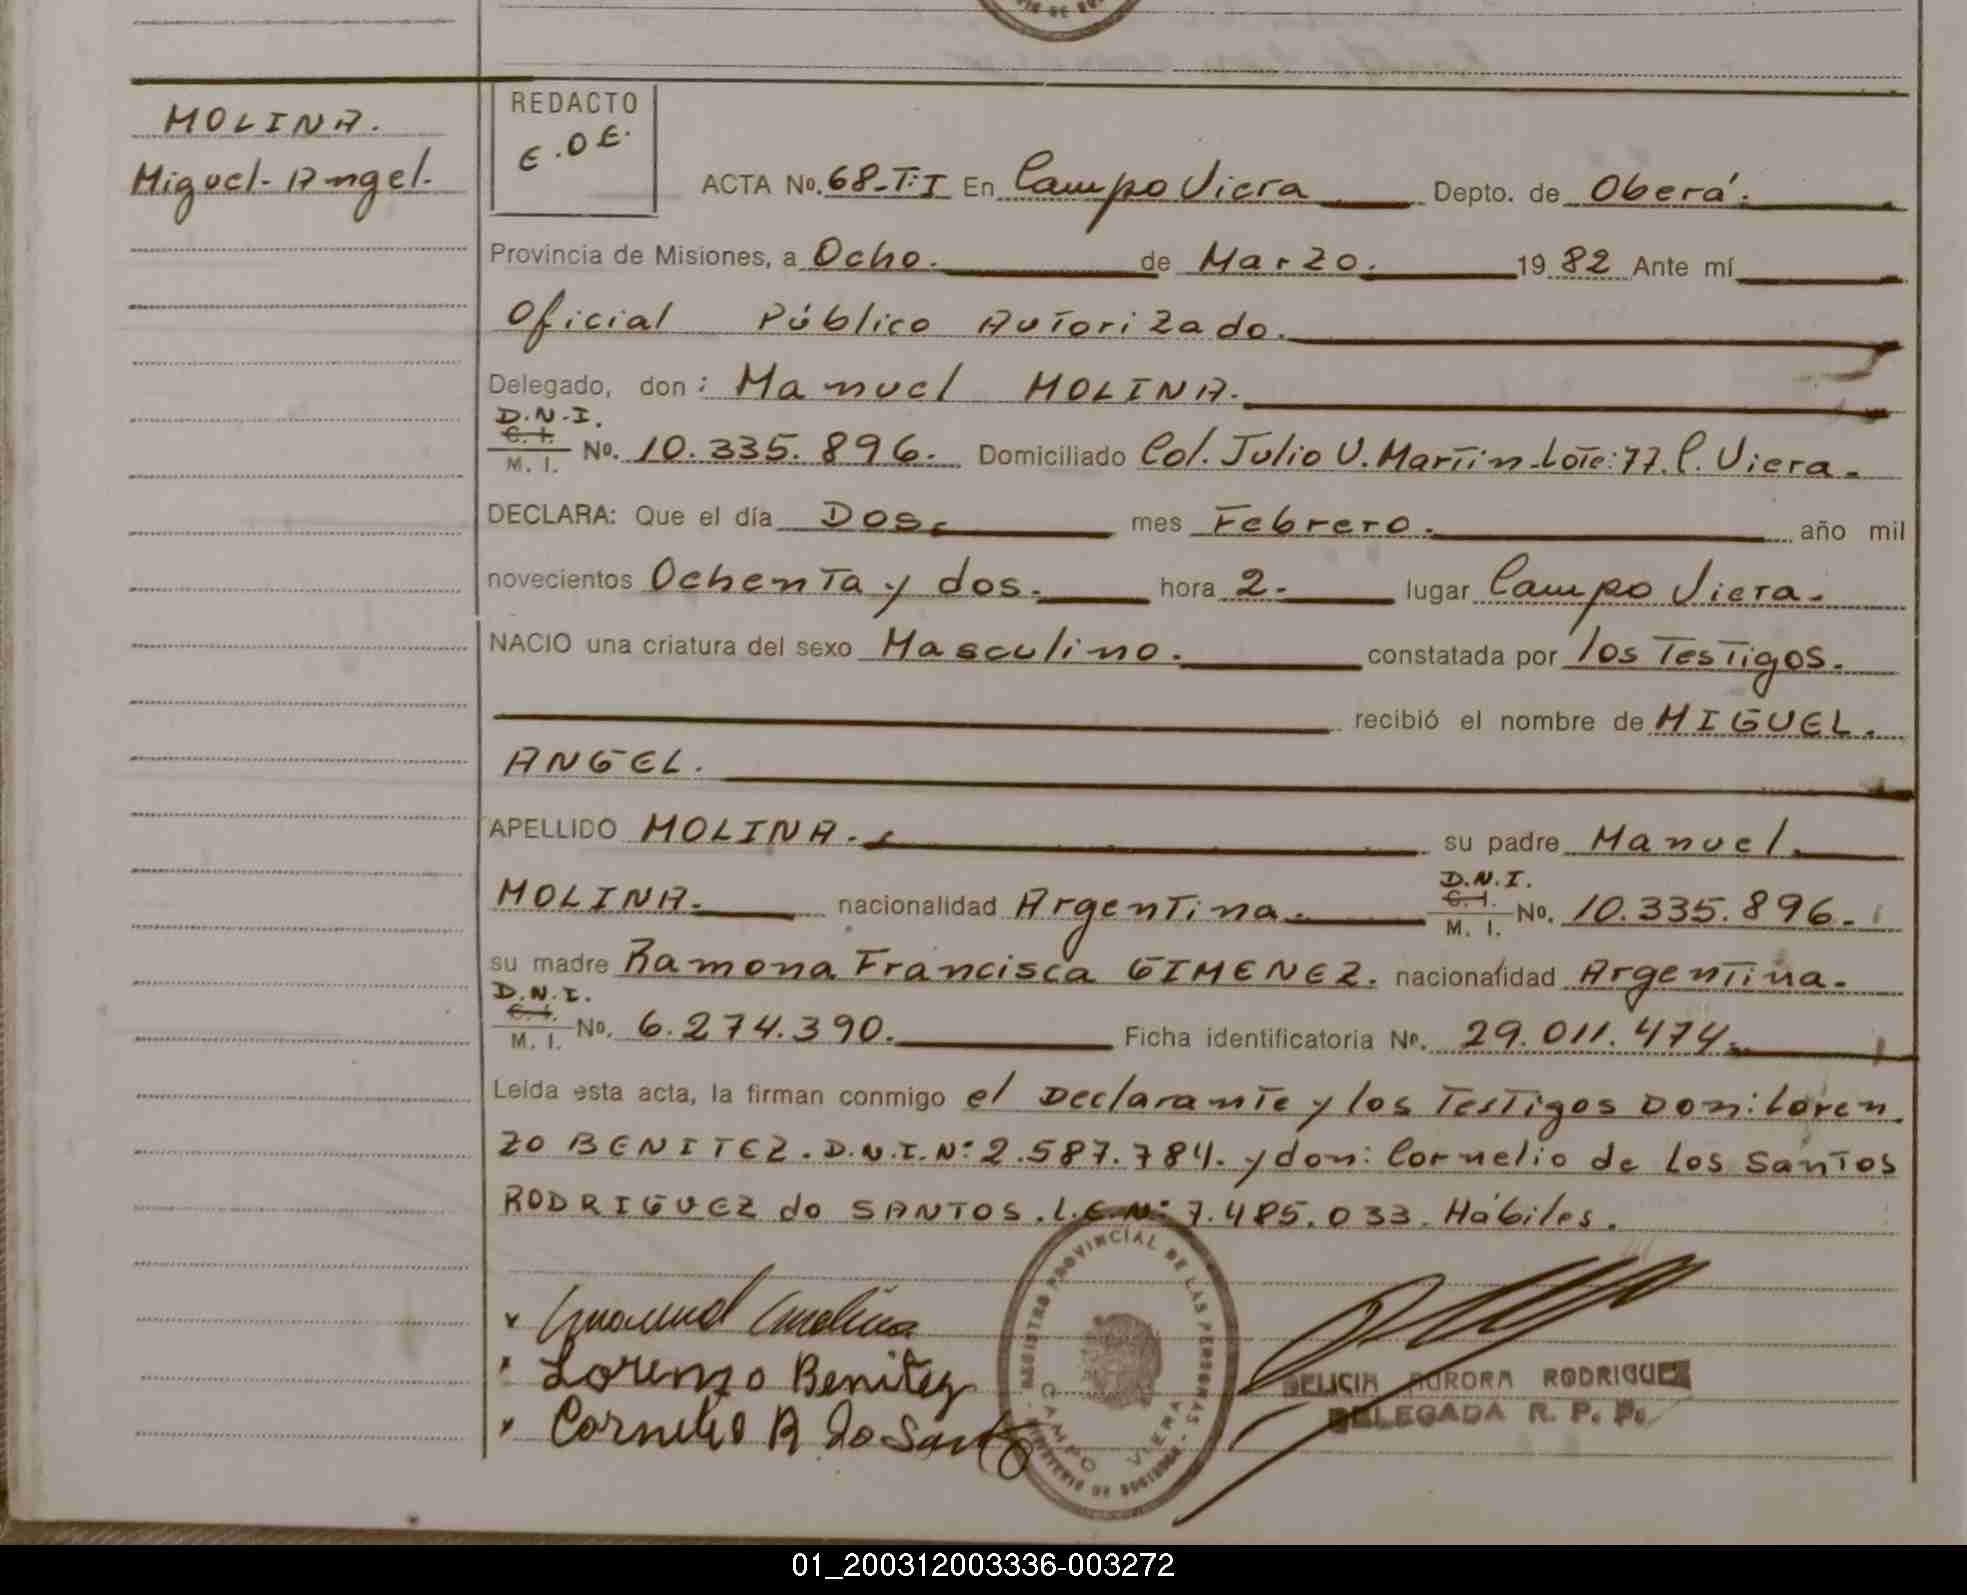 MOLINA.
Miguel-Angel.
REDACTO
E.O.E.
ACTA No. 68-T:I En Campo Viera Depto. de Oberá.
Provincia de Misiones, a Ocho. de Marzo. 19 82 Ante mí
Oficial Público Autorizado.
Delegado, don: Manuel MOLINA.
D.N.I.
C. I.
M. I. No. 10.335.896. Domiciliado Col. Julio U. Martin-Lote:77. C. Viera.
DECLARA: Que el día Dos. mes Febrero. año mil
novecientos Ochenta y dos. hora 2. lugar Campo Viera.
NACIO una criatura del sexo Masculino. constatada por los Testigos.
recibió el nombre de MIGUEL.
ANGEL.
APELLIDO MOLINA. su padre Manuel.
MOLINA. nacionalidad Argentina. D.N.I. C. I. M. I. No. 10.335.896.
su madre Ramona Francisca GIMENEZ. nacionalidad Argentina.
D.N.I.
C. I.
M. I. No. 6.274.390. Ficha identificatoria No. 29.011.474.
Leída esta acta, la firman conmigo el Declarante y los Testigos Don: Loren
zo BENITEZ. D.N.I.Nº 2.587.784. y don: Cornelio de Los Santos
RODRIGUEZ do SANTOS. L.E.Nº 7.485.033. Hábiles.
Manuel Molina
Lorenzo Benitez
Cornelio R do Santos
REGISTRO PROVINCIAL DE LAS PERSONAS
CAMPO VIERA
MINISTERIO DE GOBIERNO
AURORA RODRIGUEZ
DELEGADA R. P. P.
01_200312003336-003272